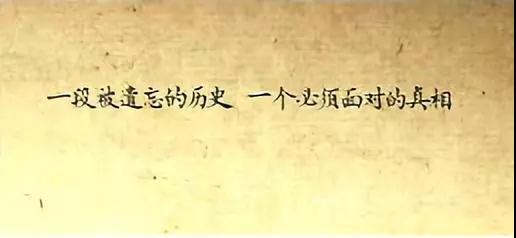 一段被遗忘的历史 一个必须面对的真相